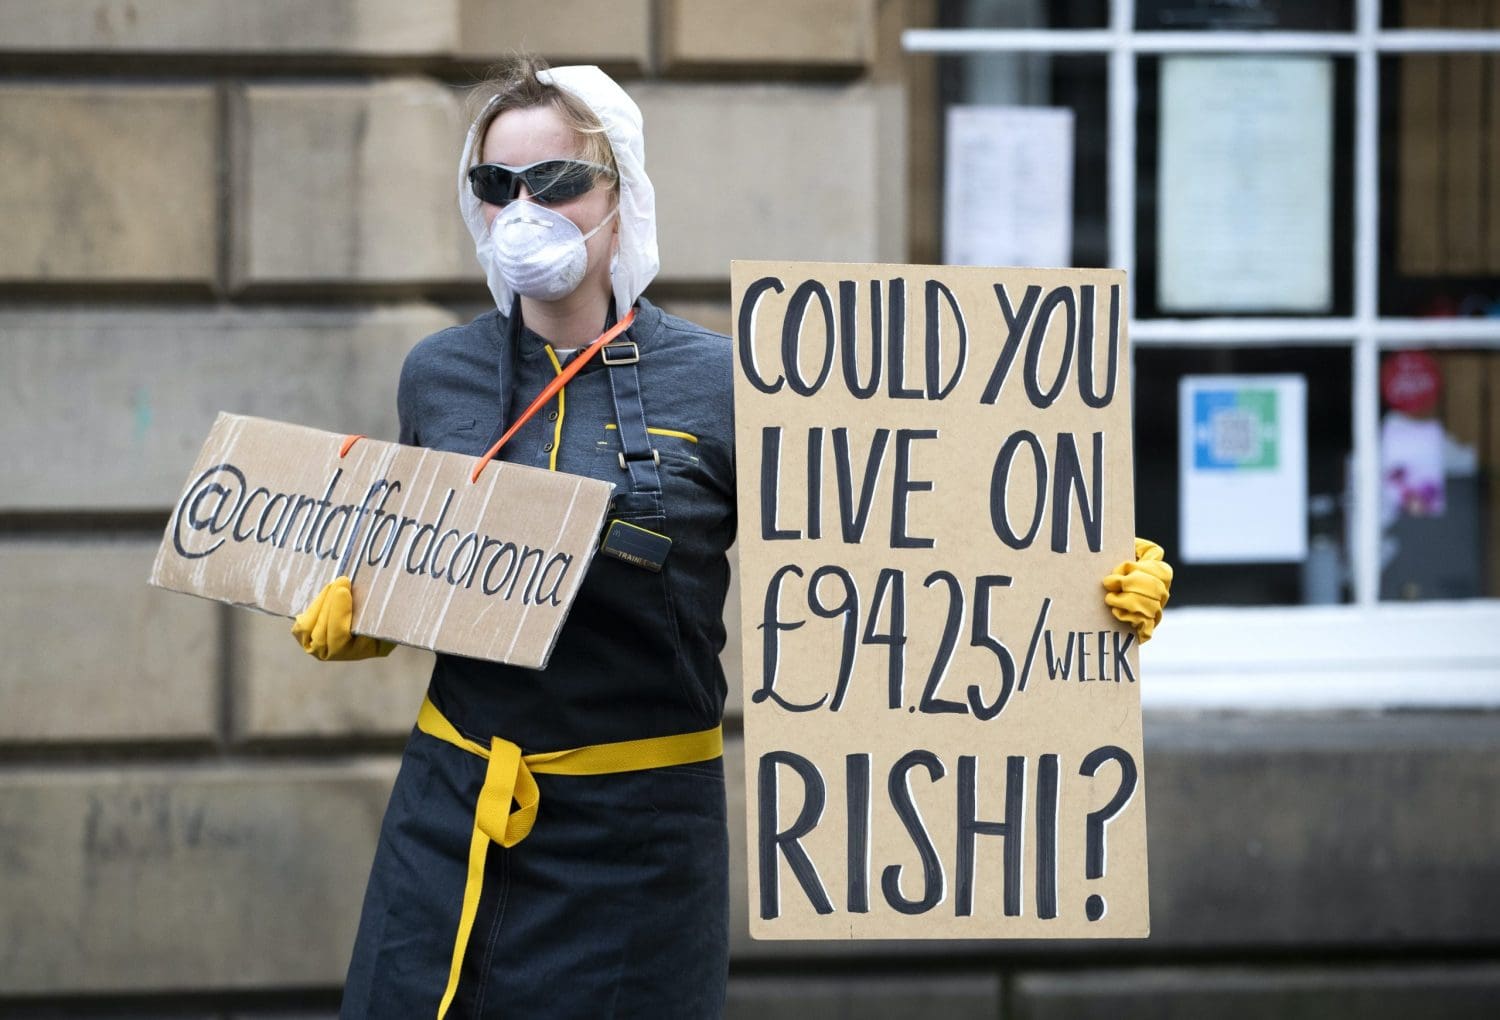 @cantaffordcorona
COULD YOU
LIVE ON
£94.25/WEEK
RISHI?